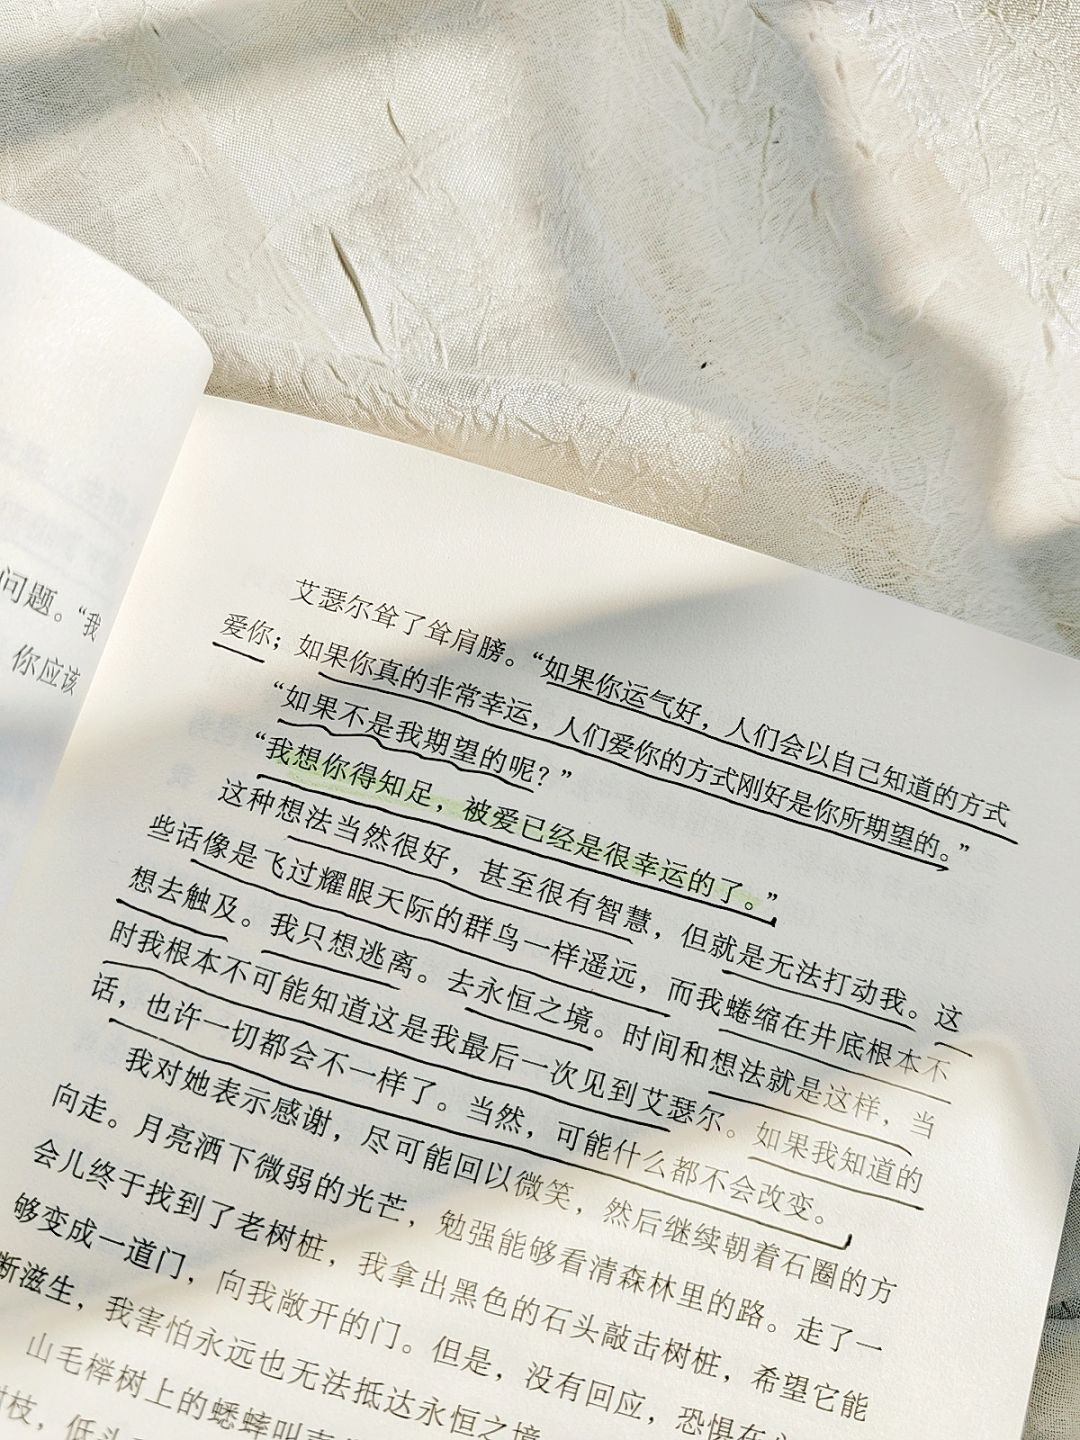 问题。“我
你应该
艾瑟尔耸了耸肩膀。“如果你运气好，人们会以自己知道的方式
爱你；如果你真的非常幸运，人们爱你的方式刚好是你所期望的。”
“如果不是我期望的呢？”
“我想你得知足，被爱已经是很幸运的了。”
这种想法当然很好，甚至很有智慧，但就是无法打动我。这
些话像是飞过耀眼天际的群鸟一样遥远，而我蜷缩在井底根本不
想去触及。我只想逃离。去永恒之境。时间和想法就是这样，当
时我根本不可能知道这是我最后一次见到艾瑟尔。如果我知道的
话，也许一切都会不一样了。当然，可能什么都不会改变。
我对她表示感谢，尽可能回以微笑，然后继续朝着石圈的方
向走。月亮洒下微弱的光芒，勉强能够看清森林里的路。走了一
会儿终于找到了老树桩，我拿出黑色的石头敲击树桩，希望它能
够变成一道门，向我敞开的门。但是，没有回应，恐惧在
断滋生，我害怕永远也无法抵达永恒之境
山毛榉树上的蟋蟀叫声
树枝，低头